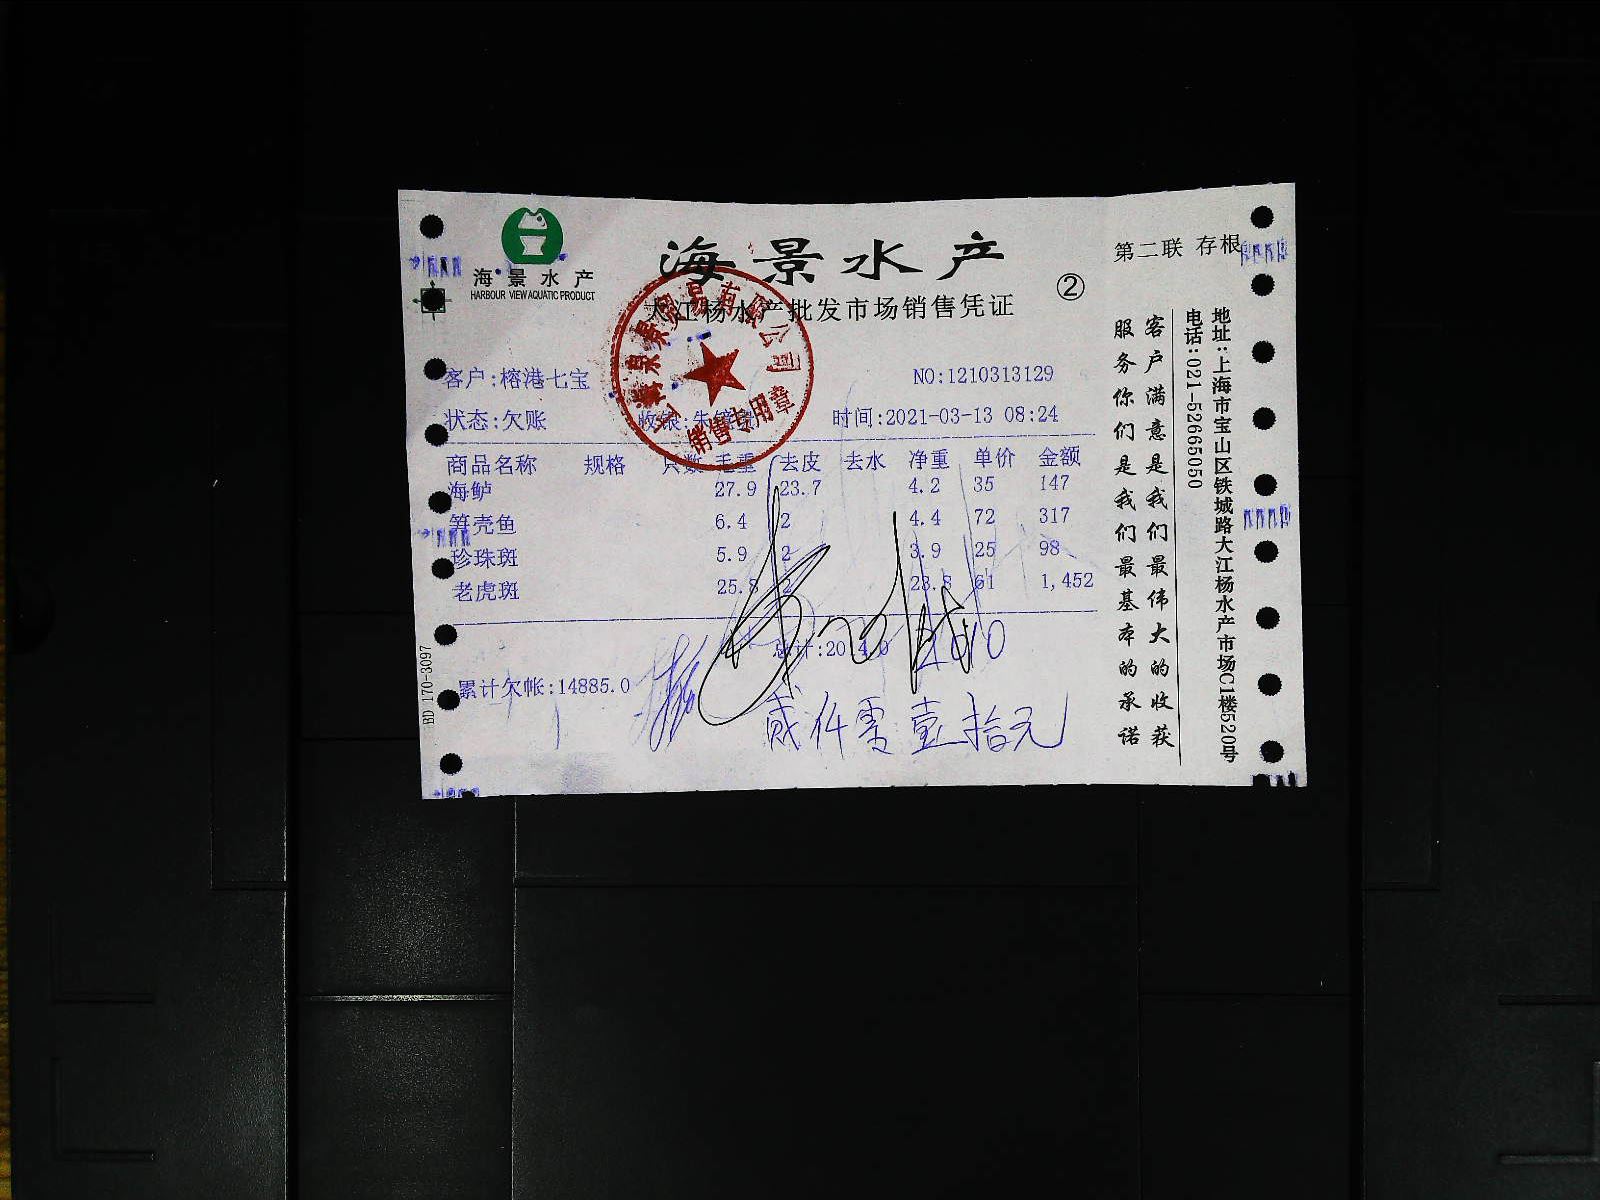 海景水产
HARBOUR VIEW AQUATIC PRODUCT
海景水产
大江杨水产批发市场销售凭证
②
第二联 存根
客户:榕港七宝
NO:1210313129
状态:欠账 收银:朱 时间:2021-03-13 08:24
商品名称 规格 只数 毛重 去皮 去水 净重 单价 金额
海鲈 27.9 23.7 4.2 35 147
笋壳鱼 6.4 2 4.4 72 317
珍珠斑 5.9 2 3.9 25 98
老虎斑 25.8 2 23.8 61 1,452
总计:2014.0 2010
累计欠帐:14885.0
贰仟零壹拾元
销售专用章
客户满意是我们最伟大的收获
服务你们是我们最基本的承诺
地址:上海市宝山区铁城路大江杨水产市场C1楼520号
电话:021-52665050
BD 170-3097